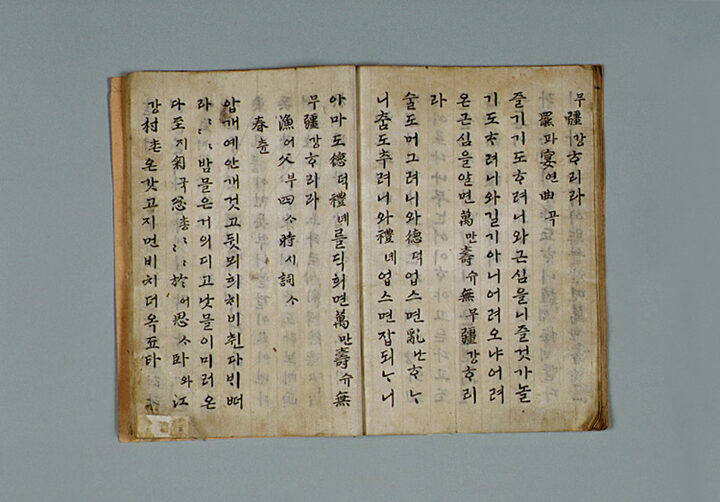 무疆강ᄒᆞ리라
罷파宴연曲곡
즐기기도ᄒᆞ려니와근심을니즐것가놀
기도ᄒᆞ려니와길기아니어려오냐어려
온근심을알면萬만壽슈無무疆강ᄒᆞ리
라
술도머그려니와德덕업스면亂난ᄒᆞᄂᆞ
니춤도추려니와禮녜업스면잡되ᄂᆞ니
아마도德덕禮녜를딕희면萬만壽슈無
무疆강ᄒᆞ리라
漁어父부四ᄉᆞ時시詞ᄉᆞ
春츈
압개예안개것고뒷뫼희ᄒᆡ비췬다ᄇᆡᄠᅥ
라〻〻밤믈은거의디고낫믈이미러온
다至지匊국悤총〻〻於어思ᄉᆞ臥와江
강村촌온갓고지먼비치더옥됴타